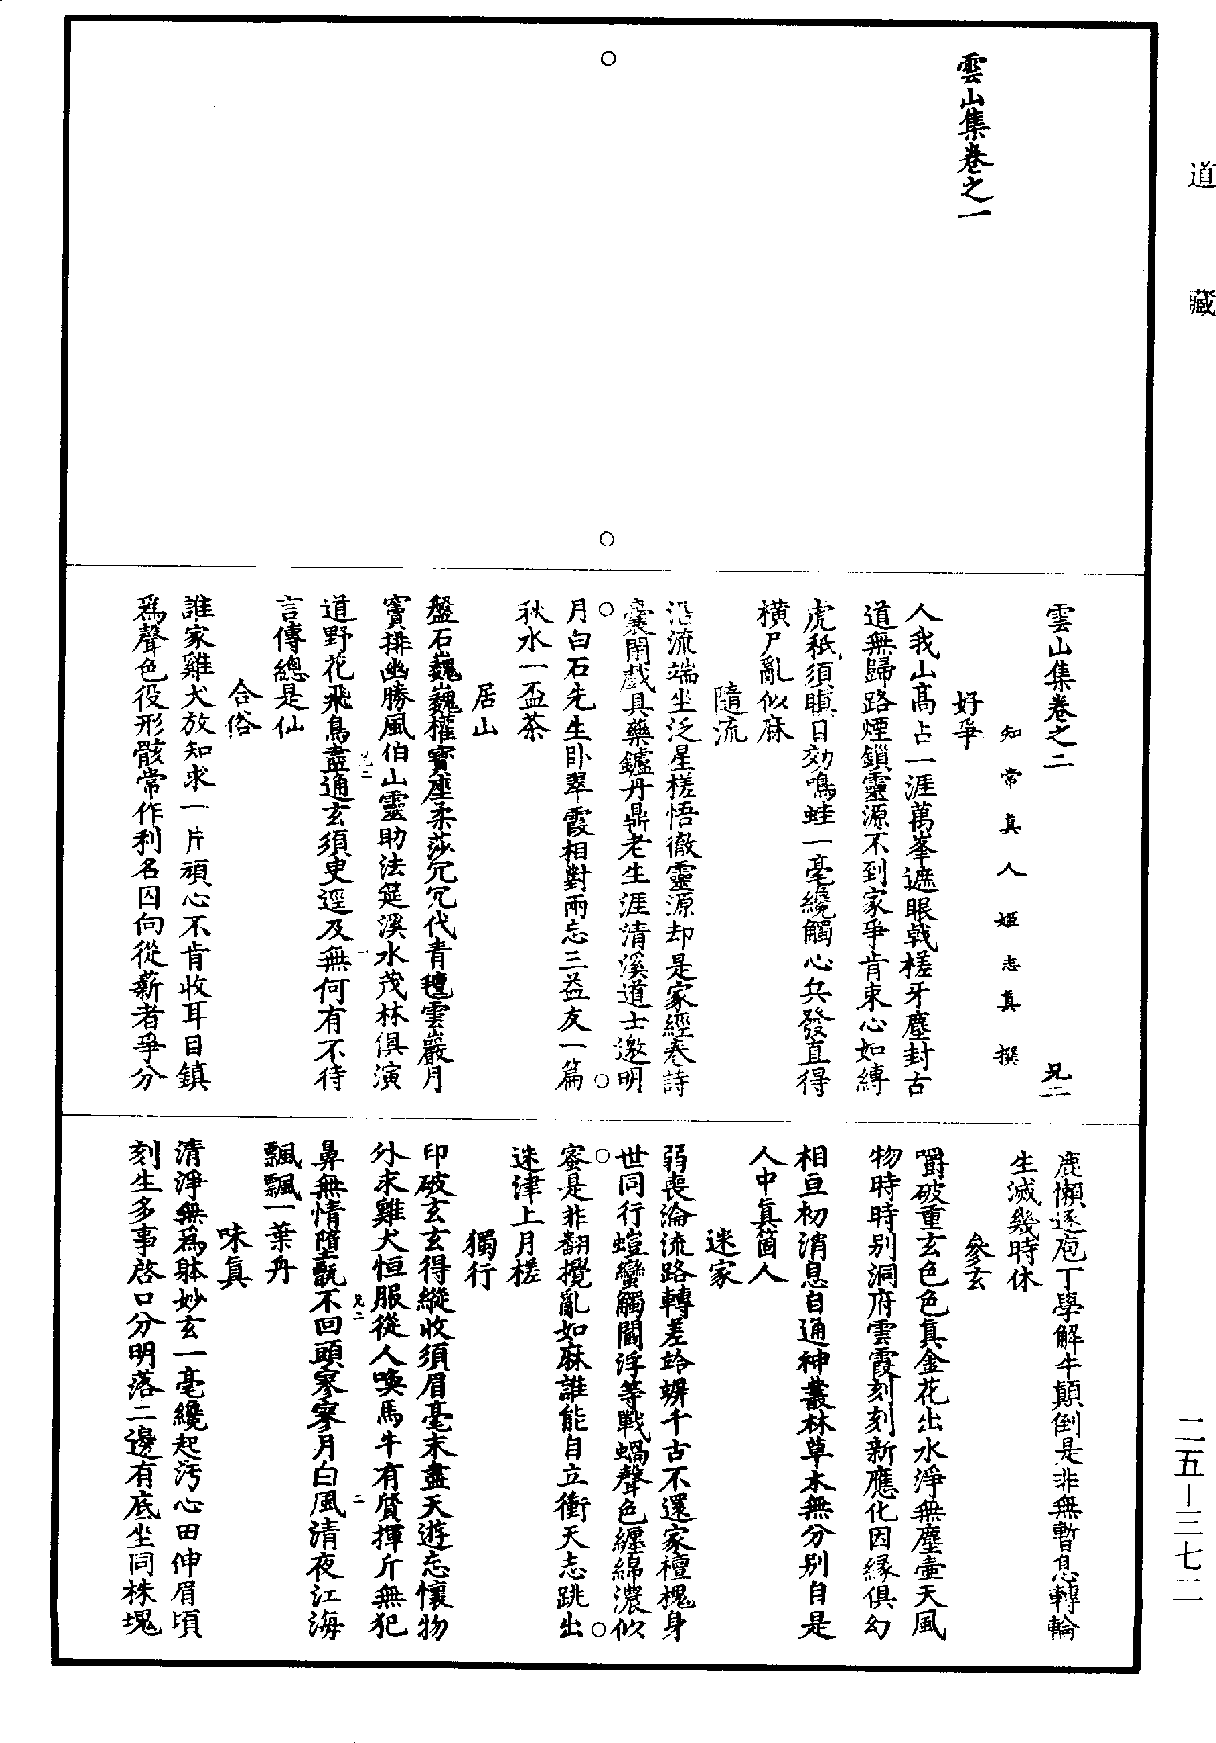 道藏
雲山集卷之一
雲山集卷之二 兄二
知常真人姬志真撰
好爭
人我山高占一涯萬峯遮眼戟槎牙塵封古
道無歸路煙鎖靈源不到家爭肯束心如縛
虎秪須瞋目効鳴蛙一毫纔觸心兵發直得
橫尸亂似麻
隨流
沿流端坐泛星槎悟徹靈源却是家經卷詩
囊閑戲具藥鑪丹鼎老生涯清溪道士邀明
月白石先生卧翠霞相對兩忘三益友一篇
秋水一盃茶
居山
盤石巍巍權寶座柔莎冗冗代青氊雲巖月
竇排幽勝風伯山靈助法筵溪水茂林俱演
道野花飛鳥盡通玄須臾逕及無何有不待
言傳總是仙
合俗
誰家雞犬放知求一片頑心不肯收耳目鎮
爲聲色役形骸常作利名囚向從薪者爭分
鹿懶逐庖丁學解牛顛倒是非無暫息轉輪
生滅幾時休
參玄
嚼破重玄色色真金花出水淨無塵壺天風
物時時别洞府雲霞刻刻新應化因緣俱幻
相亘初消息自通神叢林草木無分别自是
人中真箇人
迷家
弱喪淪流路轉差跉竮千古不還家襢槐身
世同行螘蠻觸閻浮等戰蝸聲色纏綿濃似
蜜是非翻攪亂如麻誰能自立衝天志跳出
迷津上月槎
獨行
印破玄玄得縱收須眉毫末盡天遊忘懷物
外求雞犬恒服從人喚馬牛有質揮斤無犯
鼻無情墮甑不回頭寥寥月白風清夜江海
飄飄一葉舟
味真
清淨無爲躰妙玄一毫纔起污心田伸眉頃
刻生多事啓口分明落二邊有底坐同株塊
兄二 一
兄二 二
二五－三七二